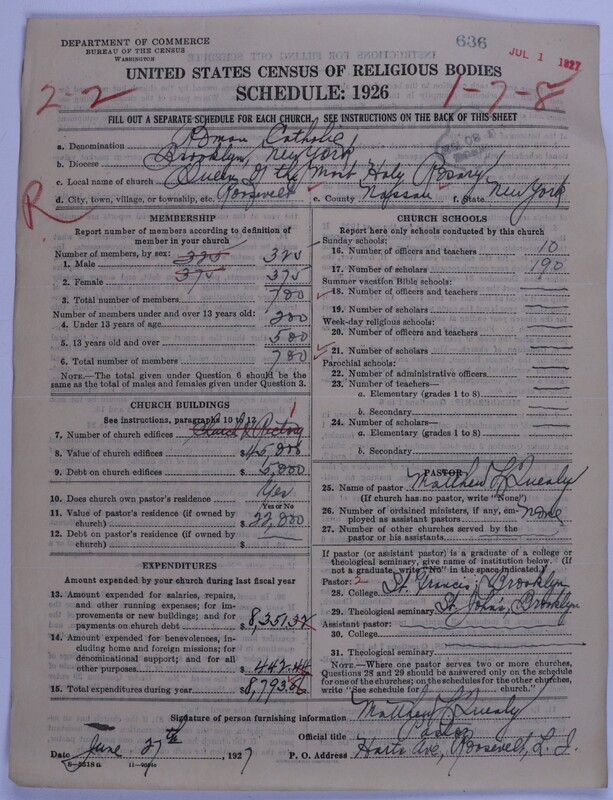 DEPARTMENT OF COMMERCE
BUREAU OF THE CENSUS
WASHINGTON
636
JUL 1 1927
UNITED STATES CENSUS OF RELIGIOUS BODIES
2-2
SCHEDULE: 1926
1-7-8
FILL OUT A SEPARATE SCHEDULE FOR EACH CHURCH. SEE INSTRUCTIONS ON THE BACK OF THIS SHEET
a. Denomination Roman Catholic
b. Diocese Brooklyn, New York
c. Local name of church Queen of the Most Holy Rosary
d. City, town, village, or township, etc. Roosevelt e. County Nassau f. State New York
R
MEMBERSHIP
Report number of members according to definition of
member in your church
Number of members, by sex:
1. Male 325 325
2. Female 375 375
3. Total number of members 700
Number of members under and over 13 years old:
4. Under 13 years of age 200
5. 13 years old and over 500
6. Total number of members 700
NOTE.—The total given under Question 6 should be
the same as the total of males and females given under Question 3.
CHURCH BUILDINGS
See instructions, paragraphs 10 to 12
1
7. Number of church edifices Church & Rectory
8. Value of church edifices $45,000
9. Debt on church edifices $5,000
10. Does church own pastor's residence Yes
Yes or No
11. Value of pastor's residence (if owned by
church) $22,000
12. Debt on pastor's residence (if owned by
church) $
EXPENDITURES
Amount expended by your church during last fiscal year
13. Amount expended for salaries, repairs,
and other running expenses; for im-
provements or new buildings; and for
payments on church debt $8,351.32
14. Amount expended for benevolences,
including home and foreign missions; for
denominational support; and for all
other purposes $442.44
15. Total expenditures during year $8,793.
CHURCH SCHOOLS
Report here only schools conducted by this church
Sunday schools:
16. Number of officers and teachers 10
17. Number of scholars 190
Summer vacation Bible schools:
18. Number of officers and teachers
19. Number of scholars
Week-day religious schools:
20. Number of officers and teachers
21. Number of scholars
Parochial schools:
22. Number of administrative officers
23. Number of teachers—
a. Elementary (grades 1 to 8)
b. Secondary
24. Number of scholars—
a. Elementary (grades 1 to 8)
b. Secondary
PASTOR
25. Name of pastor Matthew L Quealy
(If church has no pastor, write "None")
26. Number of ordained ministers, if any, em-
ployed as assistant pastors none
27. Number of other churches served by the
pastor or his assistants
If pastor (or assistant pastor) is a graduate of a college or
theological seminary, give name of institution below. (If
not a graduate, write "No" in the space indicated.)
Pastor: 2
28. College St. Francis, Brooklyn
29. Theological seminary St. Johns, Brooklyn
Assistant pastor:
30. College
31. Theological seminary
NOTE.—Where one pastor serves two or more churches,
Questions 28 and 29 should be answered only on the schedule
for one of the churches; on the schedules for the other churches,
write "See schedule for church."
Signature of person furnishing information Matthew L Quealy
Official title Pastor
Date June 27th, 1927 P. O. Address Harts Ave, Roosevelt, L. I.
8—5518a